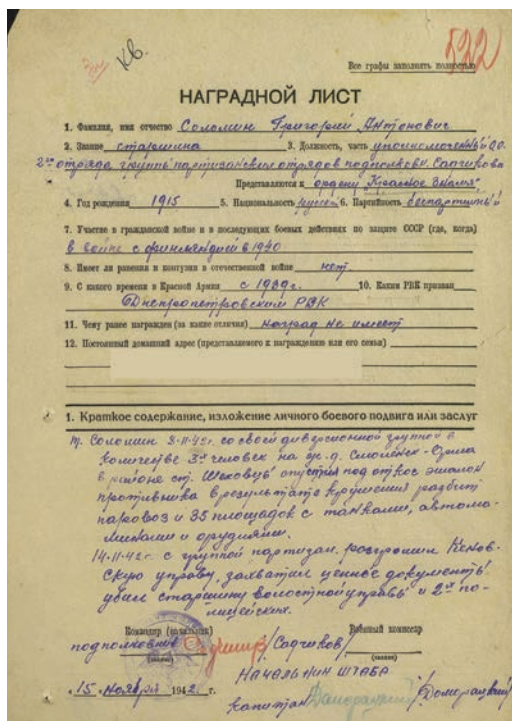 КВ.
522
Все графы заполнять полностью
НАГРАДНОЙ ЛИСТ
1. Фамилия, имя отчество Соломин Григорий Антонович
2. Звание старшина 3. Должность, часть уполномоченный ОО.
2го отряда группы партизанских отрядов подполковн. Садчикова
Представляются к ордену "Красное Знамя"
4. Год рождения 1915 5. Национальность русский 6. Партийность беспартийный
7. Участие в гражданской войне и в последующих боевых действиях по защите СССР (где, когда)
в войне с финляндией в 1940
8. Имеет ли ранения и контузии в отечественной войне нет.
9. С какого времени в Красной Армии с 1939г. 10. Каким РВК призван
Днепропетровским РВК
11. Чему ранее награжден (за какие отличия) наград не имеет
12. Постоянный домашний адрес (представляемого к награждению или его семьи)
1. Краткое содержание, изложение личного боевого подвига или заслуг
т. Соломин 9-11-42г. со своей диверсионной группой в
количестве 3х человек на ж.д. Смоленск-
в районе ст. опустил под откос эшелон
противника в результате крушения разбит
паровоз и 35 площадок с танками, автома-
шинами и орудиями.
14-11-42г. с группой партизан разгромил
скую управу, захватил ценное документы
убил старшину волостной управы и 2х по-
лицейских.
Командир (начальник) Военный комиссар
подполковник /Садчиков/
(звание) (звание)
НАЧАЛЬНИК ШТАБА
"15" Ноября 1942 г. капитан